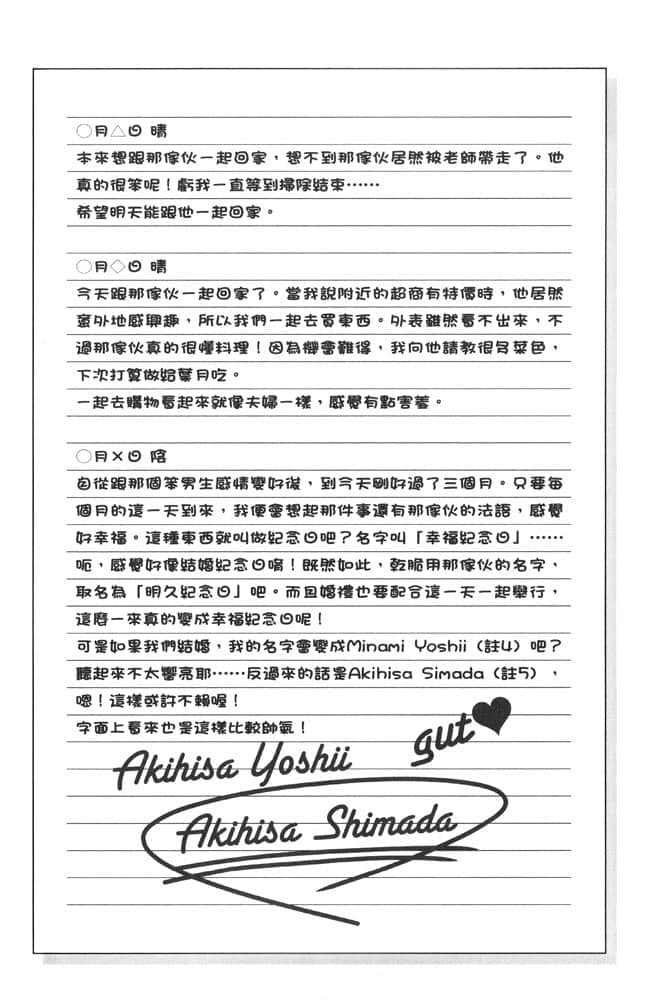 ○月△日 晴
本來想跟那傢伙一起回家，想不到那傢伙居然被老師帶走了。他
真的很笨呢！虧我一直等到掃除結束……
希望明天能跟他一起回家。
○月◇日 晴
今天跟那傢伙一起回家了。當我說附近的超商有特價時，他居然
意外地感興趣，所以我們一起去買東西。外表雖然看不出來，不
過那傢伙真的很懂料理！因為機會難得，我向他請教很多菜色，
下次打算做給葉月吃。
一起去購物看起來就像夫婦一樣，感覺有點害羞。
○月×日 陰
自從跟那個笨男生感情變好後，到今天剛好過了三個月。只要每
個月的這一天到來，我便會想起那件事還有那傢伙的法語，感覺
好幸福。這種東西就叫做紀念日吧？名字叫「幸福紀念日」……
呃，感覺好像結婚紀念日唷！既然如此，乾脆用那傢伙的名字，
取名為「明久紀念日」吧。而且婚禮也要配合這一天一起舉行，
這麼一來真的變成幸福紀念日呢！
可是如果我們結婚，我的名字會變成Minami Yoshii（註4）吧？
聽起來不太響亮耶……反過來的話是Akihisa Simada（註5），
嗯！這樣或許不賴喔！
字面上看來也是這樣比較帥氣！
gut♥
Akihisa Yoshii
Akihisa Shimada